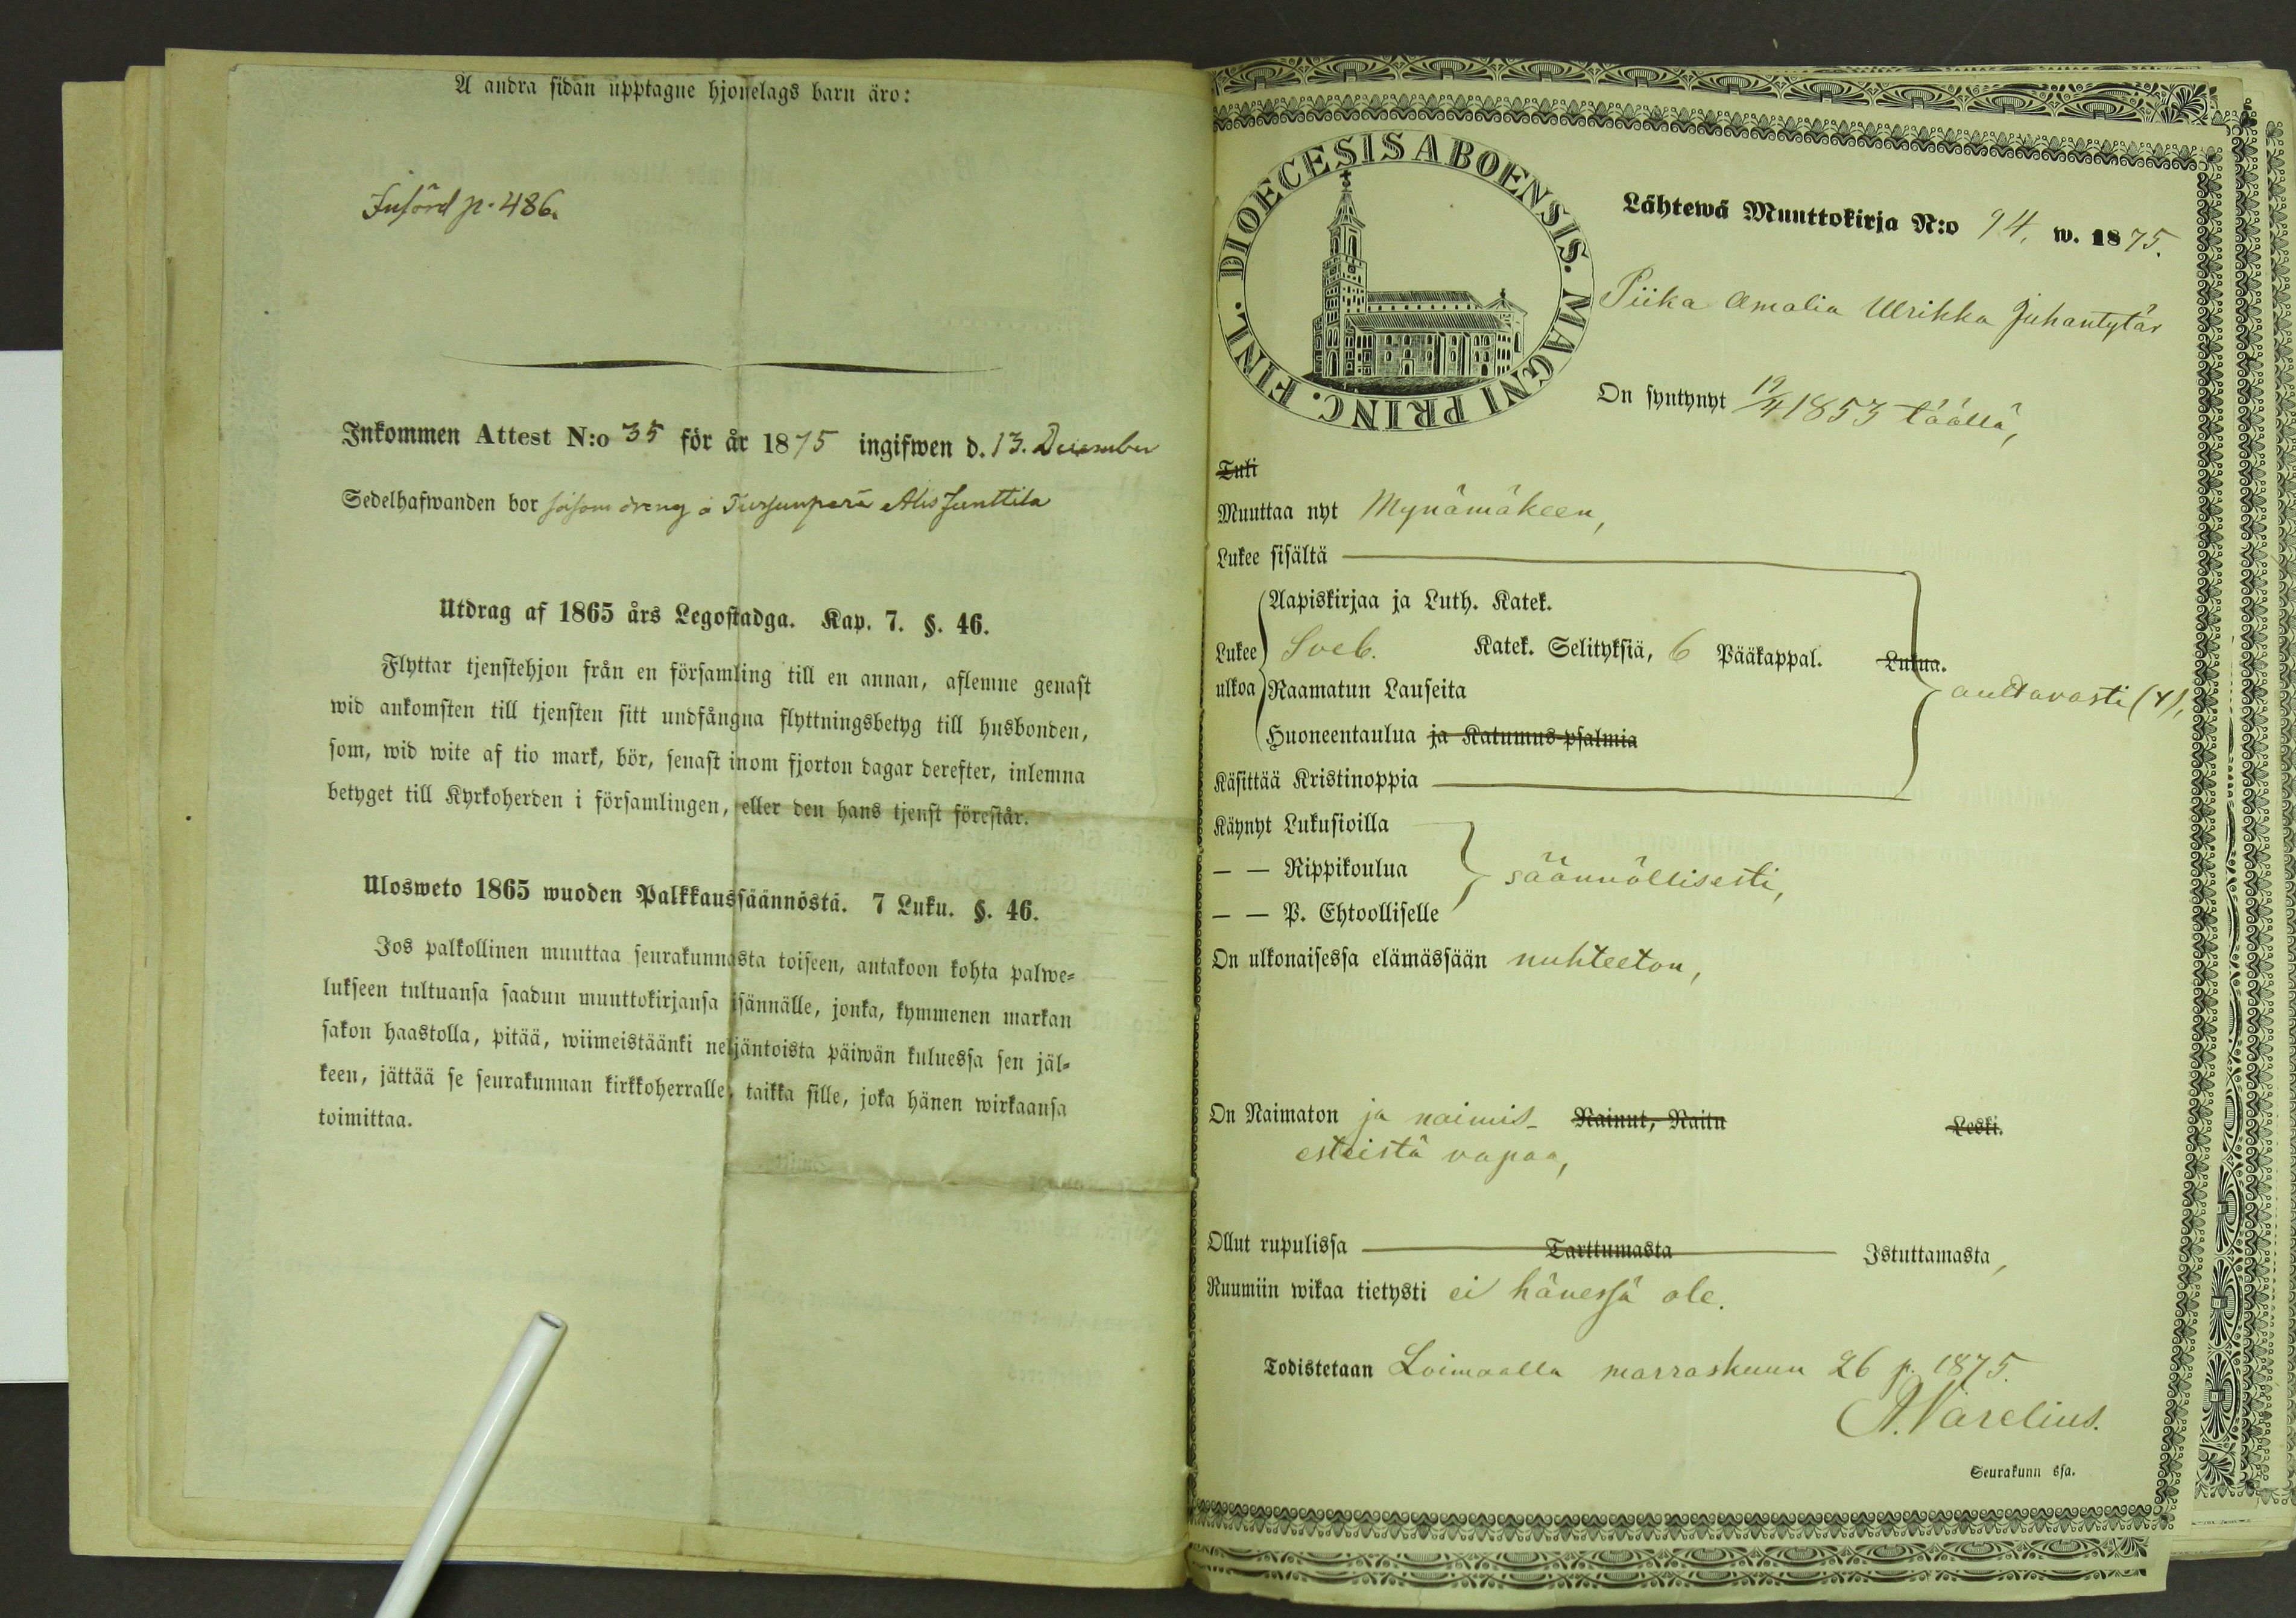 A andra sidan upptagne hjonelags barn äro:
Införd p. 486.
Inkommen Attest N:o 35 för år 1875 ingifwen d. 13. December
Sedelhafwanden bor såsom dreng å Tursunperä Alis Junttila
Utdrag af 1865 års Legostadga. Kap. 7. §. 46.
Flyttar tjenstehjon från en församling till en annan, aflemne genast
wid ankomsten till tjensten sitt undfångna flyttningsbetyg till husbonden,
som, wid wite af tio mark, bör, senast inom fjorton dagar derefter, inlemna
betyget till Kyrkoherden i församlingen, eller den hans tjenst förestår.
Ulosweto 1865 wuoden Palkkaussäännöstä. 7 Luku. §. 46.
Jos palkollinen muuttaa seurakunnasta toiseen, antakoon kohta palwe-
lukseen tultuansa saadun muuttokirjansa isännälle, jonka, kymmenen markan
sakon haastolla, pitää, wiimeistäänki neljäntoista päiwän kuluessa sen jäl-
keen, jättää se seurakunnan kirkkoherralle, taikka sille, joka hänen wirkaansa
toimittaa.
DIOECESIS ABOENSIS. MAGNI PRINC. FINL.
Lähtewä Muuttokirja N:o 94. w. 1875.
Piika Amalia Ulrikka Juhantytär
On syntynyt 19/4 1853 täällä,
Tuli
Muuttaa nyt Mynämäkeen,
Lukee sisältä
Aapiskirjaa ja Luth. Katek.
Lukee Sveb. Katek. Selityksiä, 6 Pääkappal. Lukua.
ulkoa Raamatun Lauseita auttavasti (4),
Huoneentaulua ja Katumus-psalmia
Käsittää Kristinoppia
Käynyt Lukusioilla
— — Rippikoulua säännöllisesti,
— — P. Ehtoolliselle
On ulkonaisessa elämässään nuhteeton,
On Naimaton ja naimis- Nainut, Naitu Leski.
esteistä vapaa,
Ollut rupulissa Tarttumasta Istuttamasta,
Ruumiin wikaa tietysti ei hänessä ole.
Todistetaan Loimaalla marraskuun 26 p. 1875.
A. Varelius.
Seurakunn ssa.